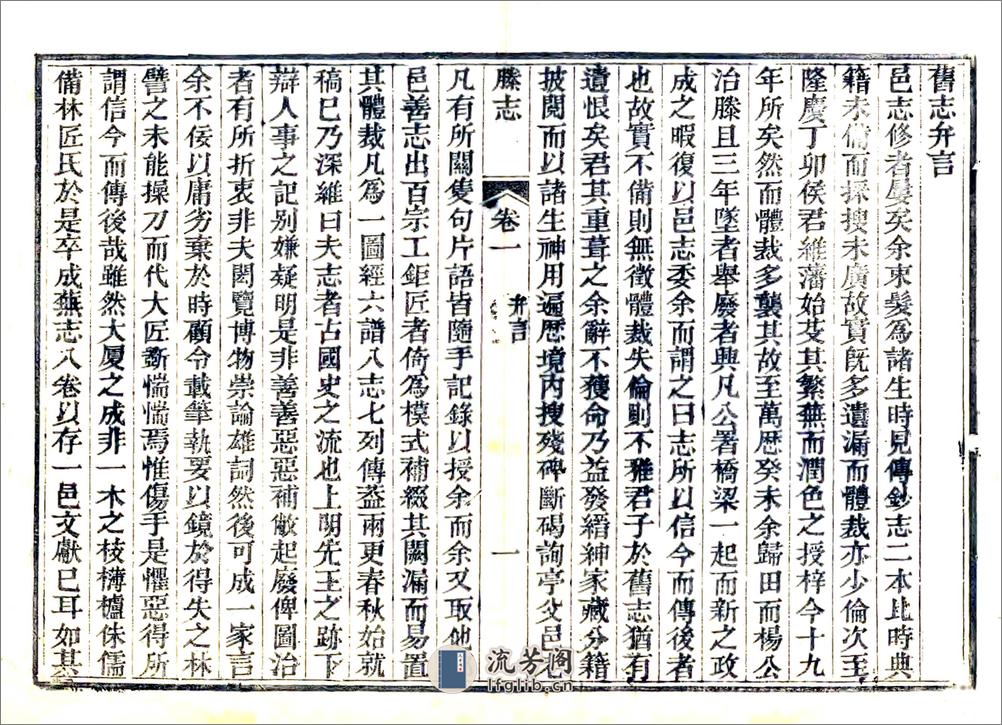 舊志弁言
邑志修者屢矣余束髮為諸生時見傳鈔志二本比時典
籍未備而採搜未廣故實旣多遺漏而體裁亦少倫次至
隆慶丁卯侯君維藩始芟其繁蕪而潤色之授梓今十九
年所矣然而體裁多襲其故至萬歷癸未余歸田而楊公
治滕且三年墜者舉廢者興凡公署橋梁一起而新之政
成之暇復以邑志委余而謂之曰志所以信今而傳後者
也故實不備則無徵體裁失倫則不雅君子於舊志猶有
遺恨矣君其重葺之余辭不獲命乃益發縉紳家藏分籍
披閱而以諸生神用遍歷境內搜殘碑斷碣詢亭父邑老
滕志
卷一
弁言
一
凡有所關隻句片語皆隨手記錄以授余而余又取他
邑善志出百宗工鉅匠者倚為模式補綴其闕漏而易置
其體裁凡為一圖經六譜八志七列傳葢兩更春秋始就
稿巳乃深維曰夫志者占國史之流也上明先王之跡下
辯人事之記別嫌疑明是非善善惡惡補敝起廢俾圖治
者有所折衷非夫閎覽博物崇論雄詞然後可成一家言
余不佞以庸劣棄於時顧令載筆執要以鏡於得失之林
譬之未能操刀而代大匠斵惴惴焉惟傷手是懼惡得所
謂信今而傳後哉雖然大厦之成非一木之枝欂櫨侏儒
備林匠氏於是卒成蕪志八卷以存一邑文獻巳耳如其
流芳阁
lfglib.cn